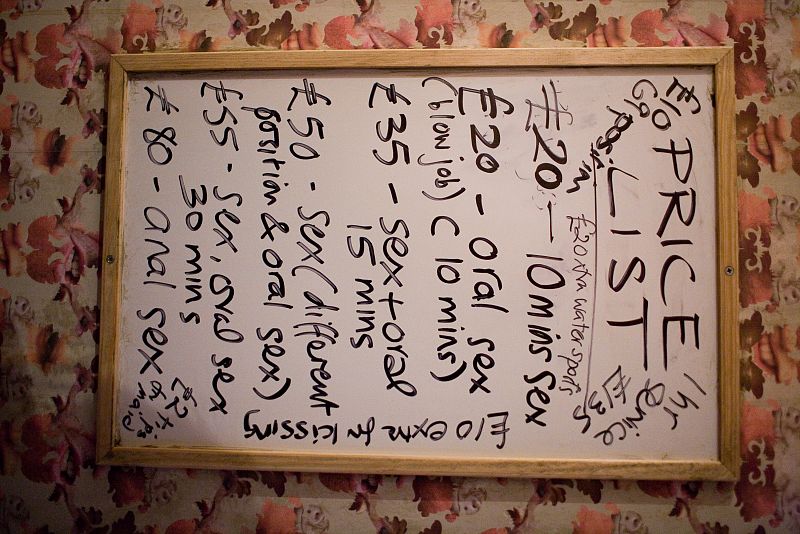 PRICE
LIST
£10
69
pos.
1hr
service
£135
£20 xtra watersports
£20 - 10mins sex
£20 - oral sex
(blowjob) (10 mins)
£35 - sex + oral
15 mins
£50 - sex (different
position & oral sex)
£55 - sex, oral sex
30 mins
£80 - anal sex
£10 extra for kissing
£2
tips